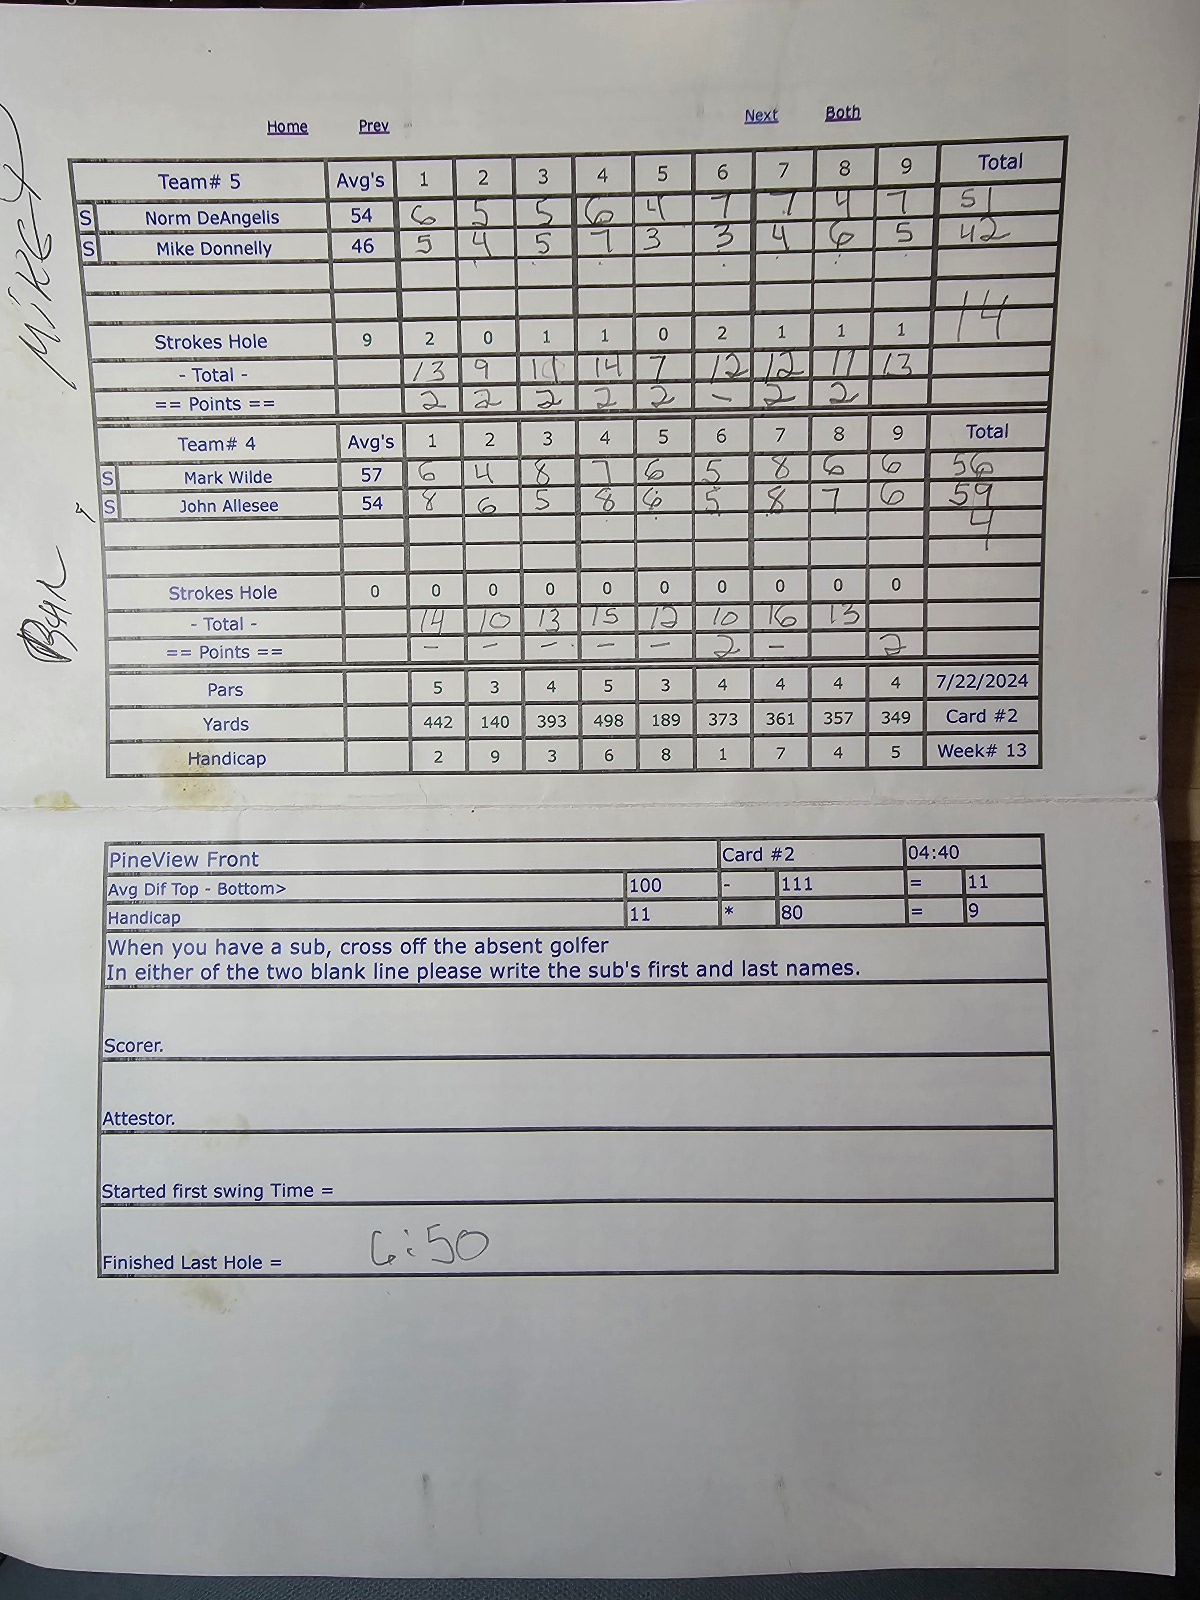 Home Prev Next Both
Team# 5 Avg's 1 2 3 4 5 6 7 8 9 Total
S Norm DeAngelis 54 6 5 5 6 4 7 7 4 7 51
S Mike Donnelly 46 5 4 5 7 3 3 4 6 5 42
14
Strokes Hole 9 2 0 1 1 0 2 1 1 1
- Total - 13 9 11 14 7 12 12 11 13
== Points == 2 2 2 2 2 - 2 2
Team# 4 Avg's 1 2 3 4 5 6 7 8 9 Total
S Mark Wilde 57 6 4 8 7 6 5 8 6 6 56
S John Allesee 54 8 6 5 8 6 5 8 7 6 59
4
Strokes Hole 0 0 0 0 0 0 0 0 0 0
- Total - 14 10 13 15 12 10 16 13
== Points == - - - - - 2 - 2
Pars 5 3 4 5 3 4 4 4 4 7/22/2024
Yards 442 140 393 498 189 373 361 357 349 Card #2
Handicap 2 9 3 6 8 1 7 4 5 Week# 13
PineView Front Card #2 04:40
Avg Dif Top - Bottom> 100 - 111 = 11
Handicap 11 * 80 = 9
When you have a sub, cross off the absent golfer
In either of the two blank line please write the sub's first and last names.
Scorer.
Attestor.
Started first swing Time =
Finished Last Hole = 6:50